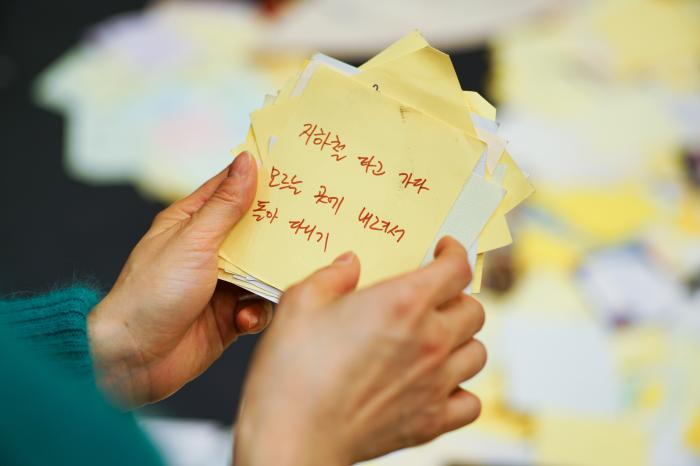 지하철 타고 가다
모르는 곳에 내려서
돌아 다니기